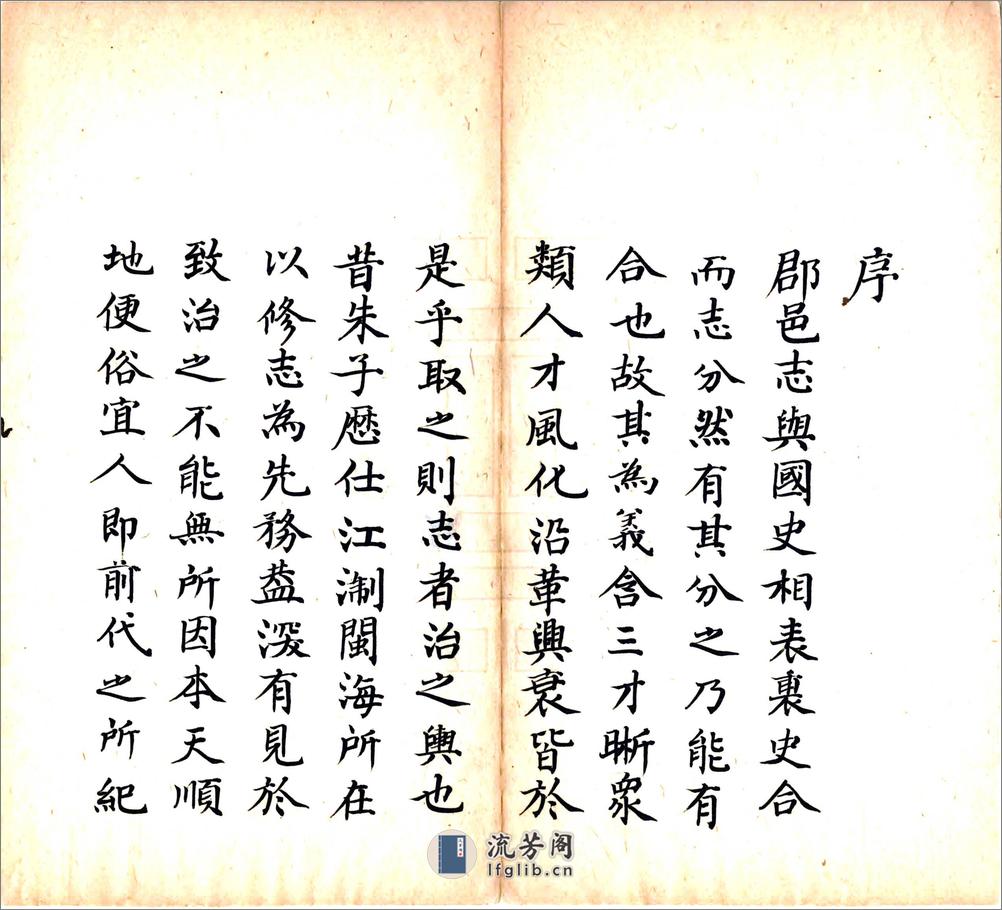 序
郡邑志與國史相表裏史合
而志分然有其分之乃能有
合也故其為義含三才晰衆
類人才風化沿革興衰皆於
是乎取之則志者治之輿也
昔朱子歷仕江淛閩海所在
以修志為先務葢深有見於
致治之不能無所因本天順
地便俗宜人即前代之所紀
流芳阁
lfglib.cn